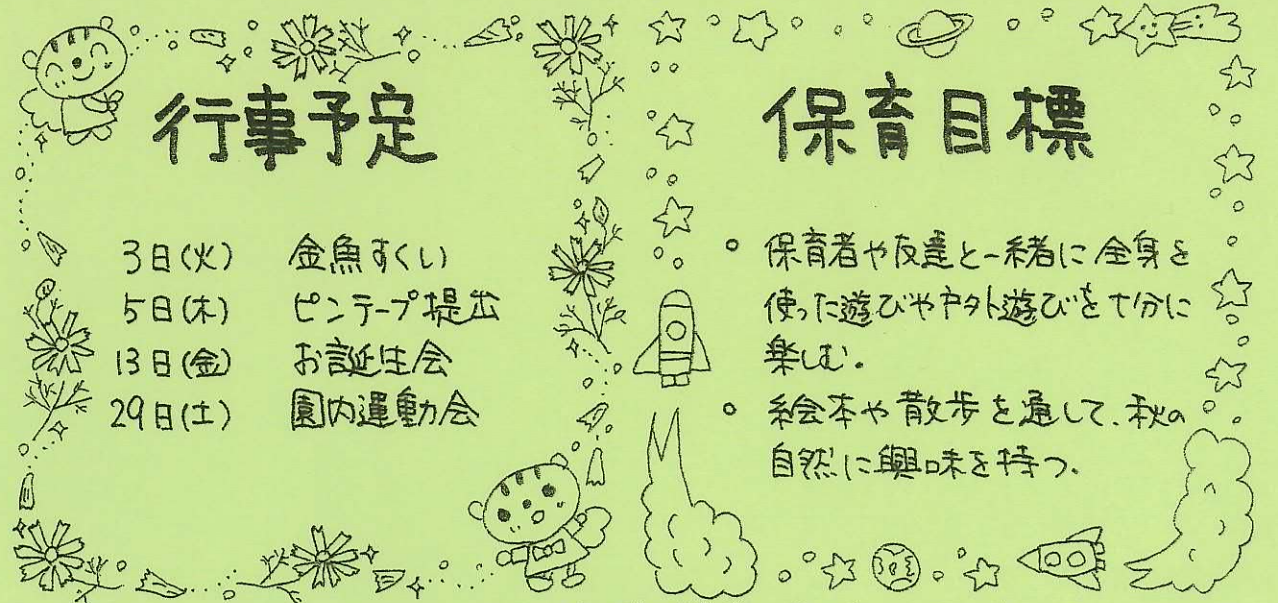 行事予定
3日(火) 金魚すくい
5日(木) ピンテープ提出
13日(金) お誕生会
29日(土) 園内運動会
保育目標
。保育者や友達と一緒に全身を
使った遊びや戸外遊びを十分に
楽しむ。
。絵本や散歩を通して、秋の
自然に興味を持つ。